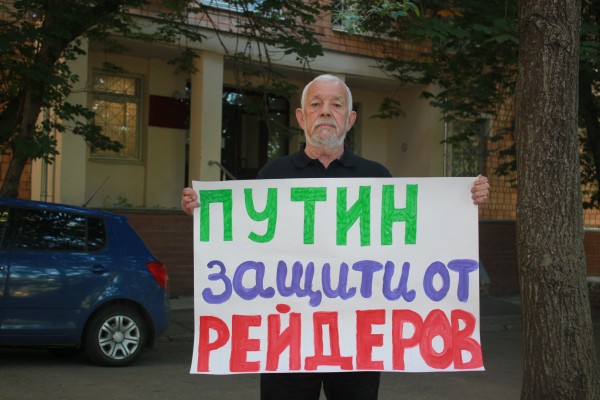 ПУТИН
ЗАЩИТИ ОТ
РЕЙДЕРОВ